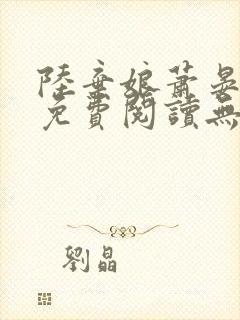 陸棄娘蕭晏
免費閱讀無
劉晶